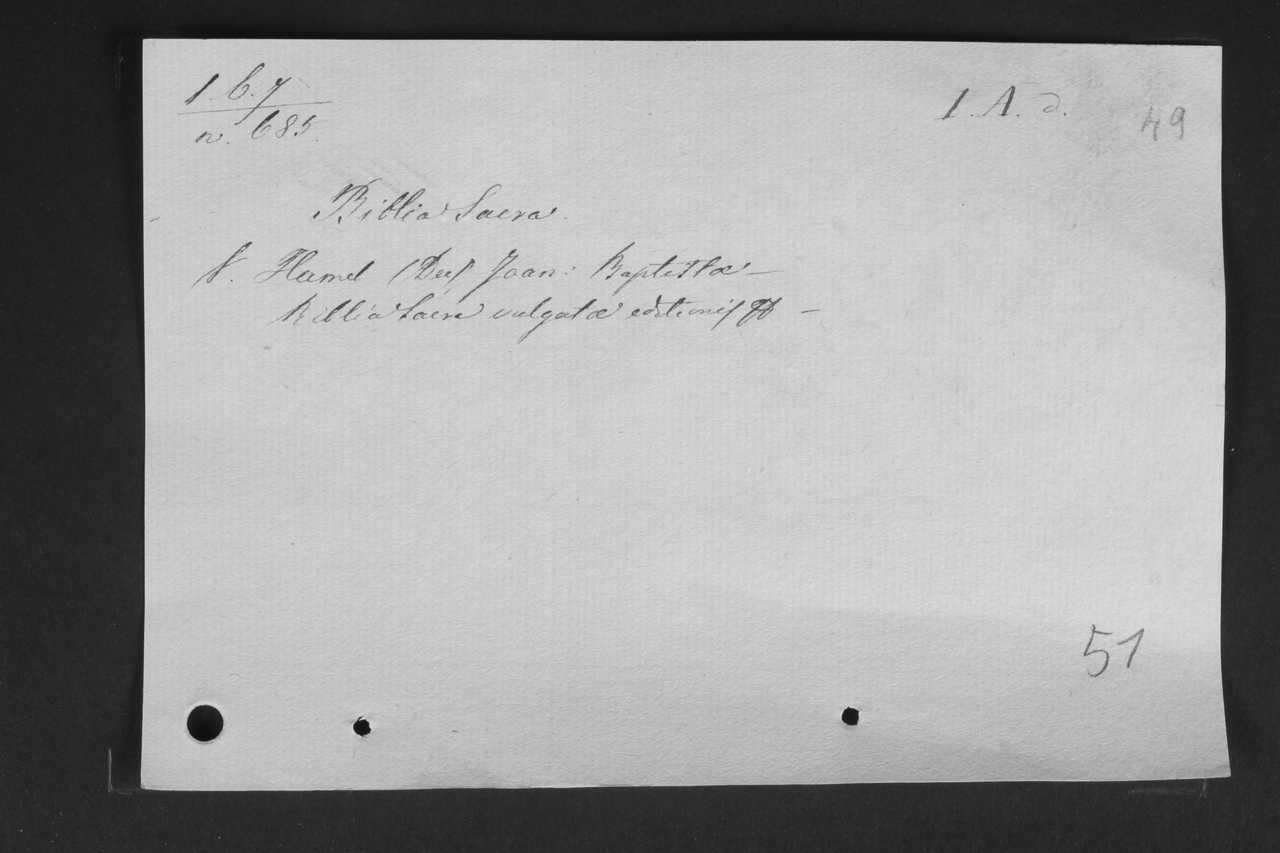 1. 6. 7
n. 685.
1. A. d.
49
Biblia Sacra.
V. Hamel (Du) Joan: Baptistæ —
Biblia Sacra vulgatæ editionis —
51